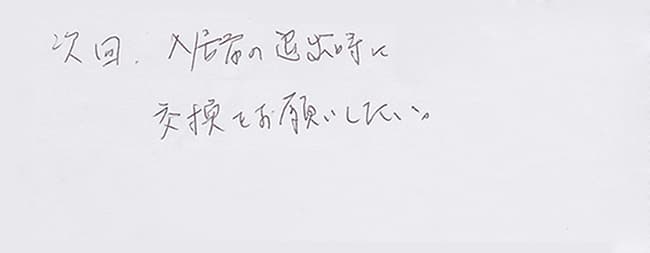 次回、入居者の退出時に
交換をお願いしたい。